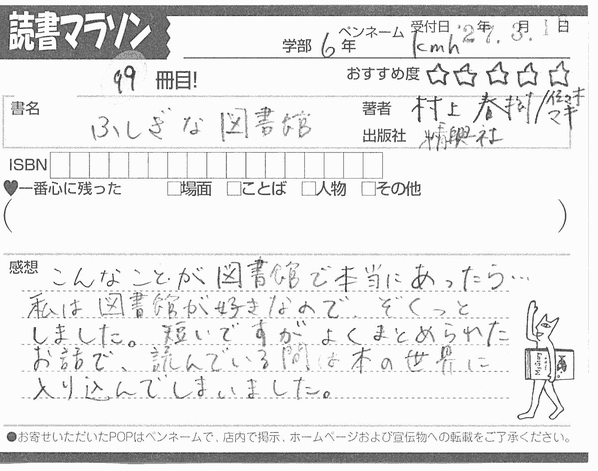 読書マラソン
学部 6年 ペンネーム kmh 受付日 '27年 3.月 1日
99 冊目!
おすすめ度 ☆☆☆☆☆
書名 ふしぎな図書館
著者 村上 春樹/佐々木マキ
出版社 精興社
ISBN
♥一番心に残った □場面 □ことば □人物 □その他
( )
感想 こんなことが図書館で本当にあったら…
私は図書館が好きなので、ぞくっと
しました。短いですがよくまとめられた
お話で、読んでいる間は本の世界に
入り込んでしまいました。
●お寄せいただいたPOPはペンネームで、店内で掲示、ホームページおよび宣伝物への転載をご了承ください。